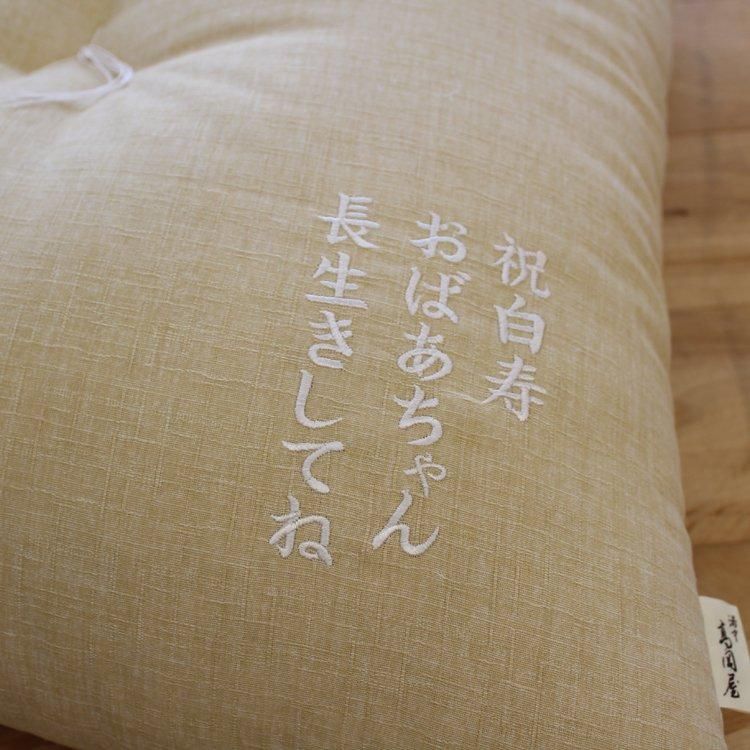 祝白寿
おばあちゃん
長生きしてね
洛中
高岡屋